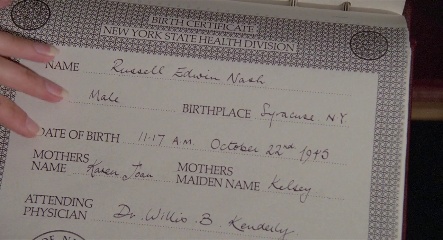 BIRTH CERTIFICATE
NEW YORK STATE HEALTH DIVISION
NAME Russell Edwin Nash
Male BIRTHPLACE Syracuse NY
DATE OF BIRTH 11.17 A.M. October 22nd 1945
MOTHERS NAME Karen Joan MOTHERS MAIDEN NAME Kelsey
ATTENDING PHYSICIAN Dr. Willis B Kenderly